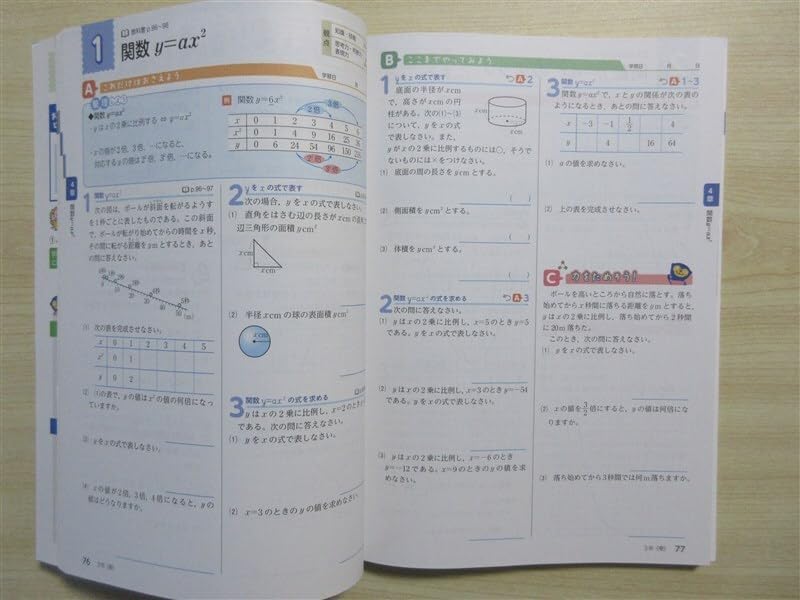 1
教科書p.96~98
関数 y=ax²
観点
知識・技能
学習日
A
これだけはおさえよう
◆関数 y=ax²
yはxの2乗に比例する ⇔ y=ax²
xの値が2倍、3倍、…になると、
対応するyの値は2²倍、3²倍、…になる。
例 関数 y=6x²
2倍 3倍
x 0 1 2 3 4 5
x² 0 1 4 9 16 25
y 0 6 24 54 96 150
1 関数 y=ax²
p.96~97
次の図は、ボールが斜面を転がるようす
を1秒ごとに表したものである。この斜面
で、ボールが転がり始めてからの時間をx秒、
その間に転がる距離をymとするとき、あと
の問に答えなさい。
(1) 次の表を完成させなさい。
x 0 1 2 3 4 5
x² 0 1
y 0 2
(2) (1)の表で、yの値はx²の値の何倍になっ
ていますか。
(3) yをxの式で表しなさい。
(4) xの値が2倍、3倍、4倍になると、yの
値はどうなりますか。
76
2 yをxの式で表す
次の場合、yをxの式で表しなさい。
(1) 直角をはさむ辺の長さがxcmの直角二
辺三角形の面積ycm²
xcm
xcm
(2) 半径xcmの球の表面積ycm²
xcm
3 関数 y=ax² の式を求める
yはxの2乗に比例し、x=2のとき
次の問に答えなさい。
(1) yをxの式で表しなさい。
(2) x=3のときのyの値を求めなさい。
B
ここまでやってみよう
学習日 月 日
1 yをxの式で表す
A-2
底面の半径がxcm
で、高さがxcmの円
柱がある。次の(1)~(3)
について、yをxの式
で表しなさい。また、
yがxの2乗に比例するものには○、そうで
ないものには×をつけなさい。
xcm
xcm
(1) 底面の周の長さをycmとする。
( )
(2) 側面積をycm²とする。
( )
(3) 体積をycm³とする。
( )
2 関数 y=ax² の式を求める
A-3
次の問に答えなさい。
(1) yはxの2乗に比例し、x=5のときy=5
である。yをxの式で表しなさい。
(2) yはxの2乗に比例し、x=3のときy=-54
である。yをxの式で表しなさい。
(3) yはxの2乗に比例し、x=-6のとき
y=-12である。x=9のときのyの値を求
めなさい。
3 関数 y=ax²
A 1-3
関数y=ax²で、xとyの関係が次の表の
ようになるとき、あとの問に答えなさい。
x -3 -1 1/2 4
y 4 16 64
(1) aの値を求めなさい。
(2) 上の表を完成させなさい。
C
力をためそう!
ボールを高いところから自然に落とす。落ち
始めてからx秒間に落ちる距離をymとすると、
yはxの2乗に比例し、落ち始めてから2秒間
に20m落ちた。
このとき、次の問に答えなさい。
(1) yをxの式で表しなさい。
(2) xの値を3/2倍にすると、yの値は何倍にな
りますか。
(3) 落ち始めてから3秒間では何m落ちますか。
4章
関数y=ax²
77